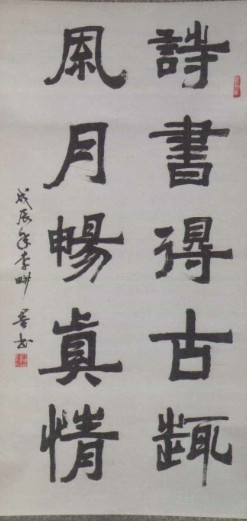 詩書得古趣
凮月暢真情
戊辰年李畊